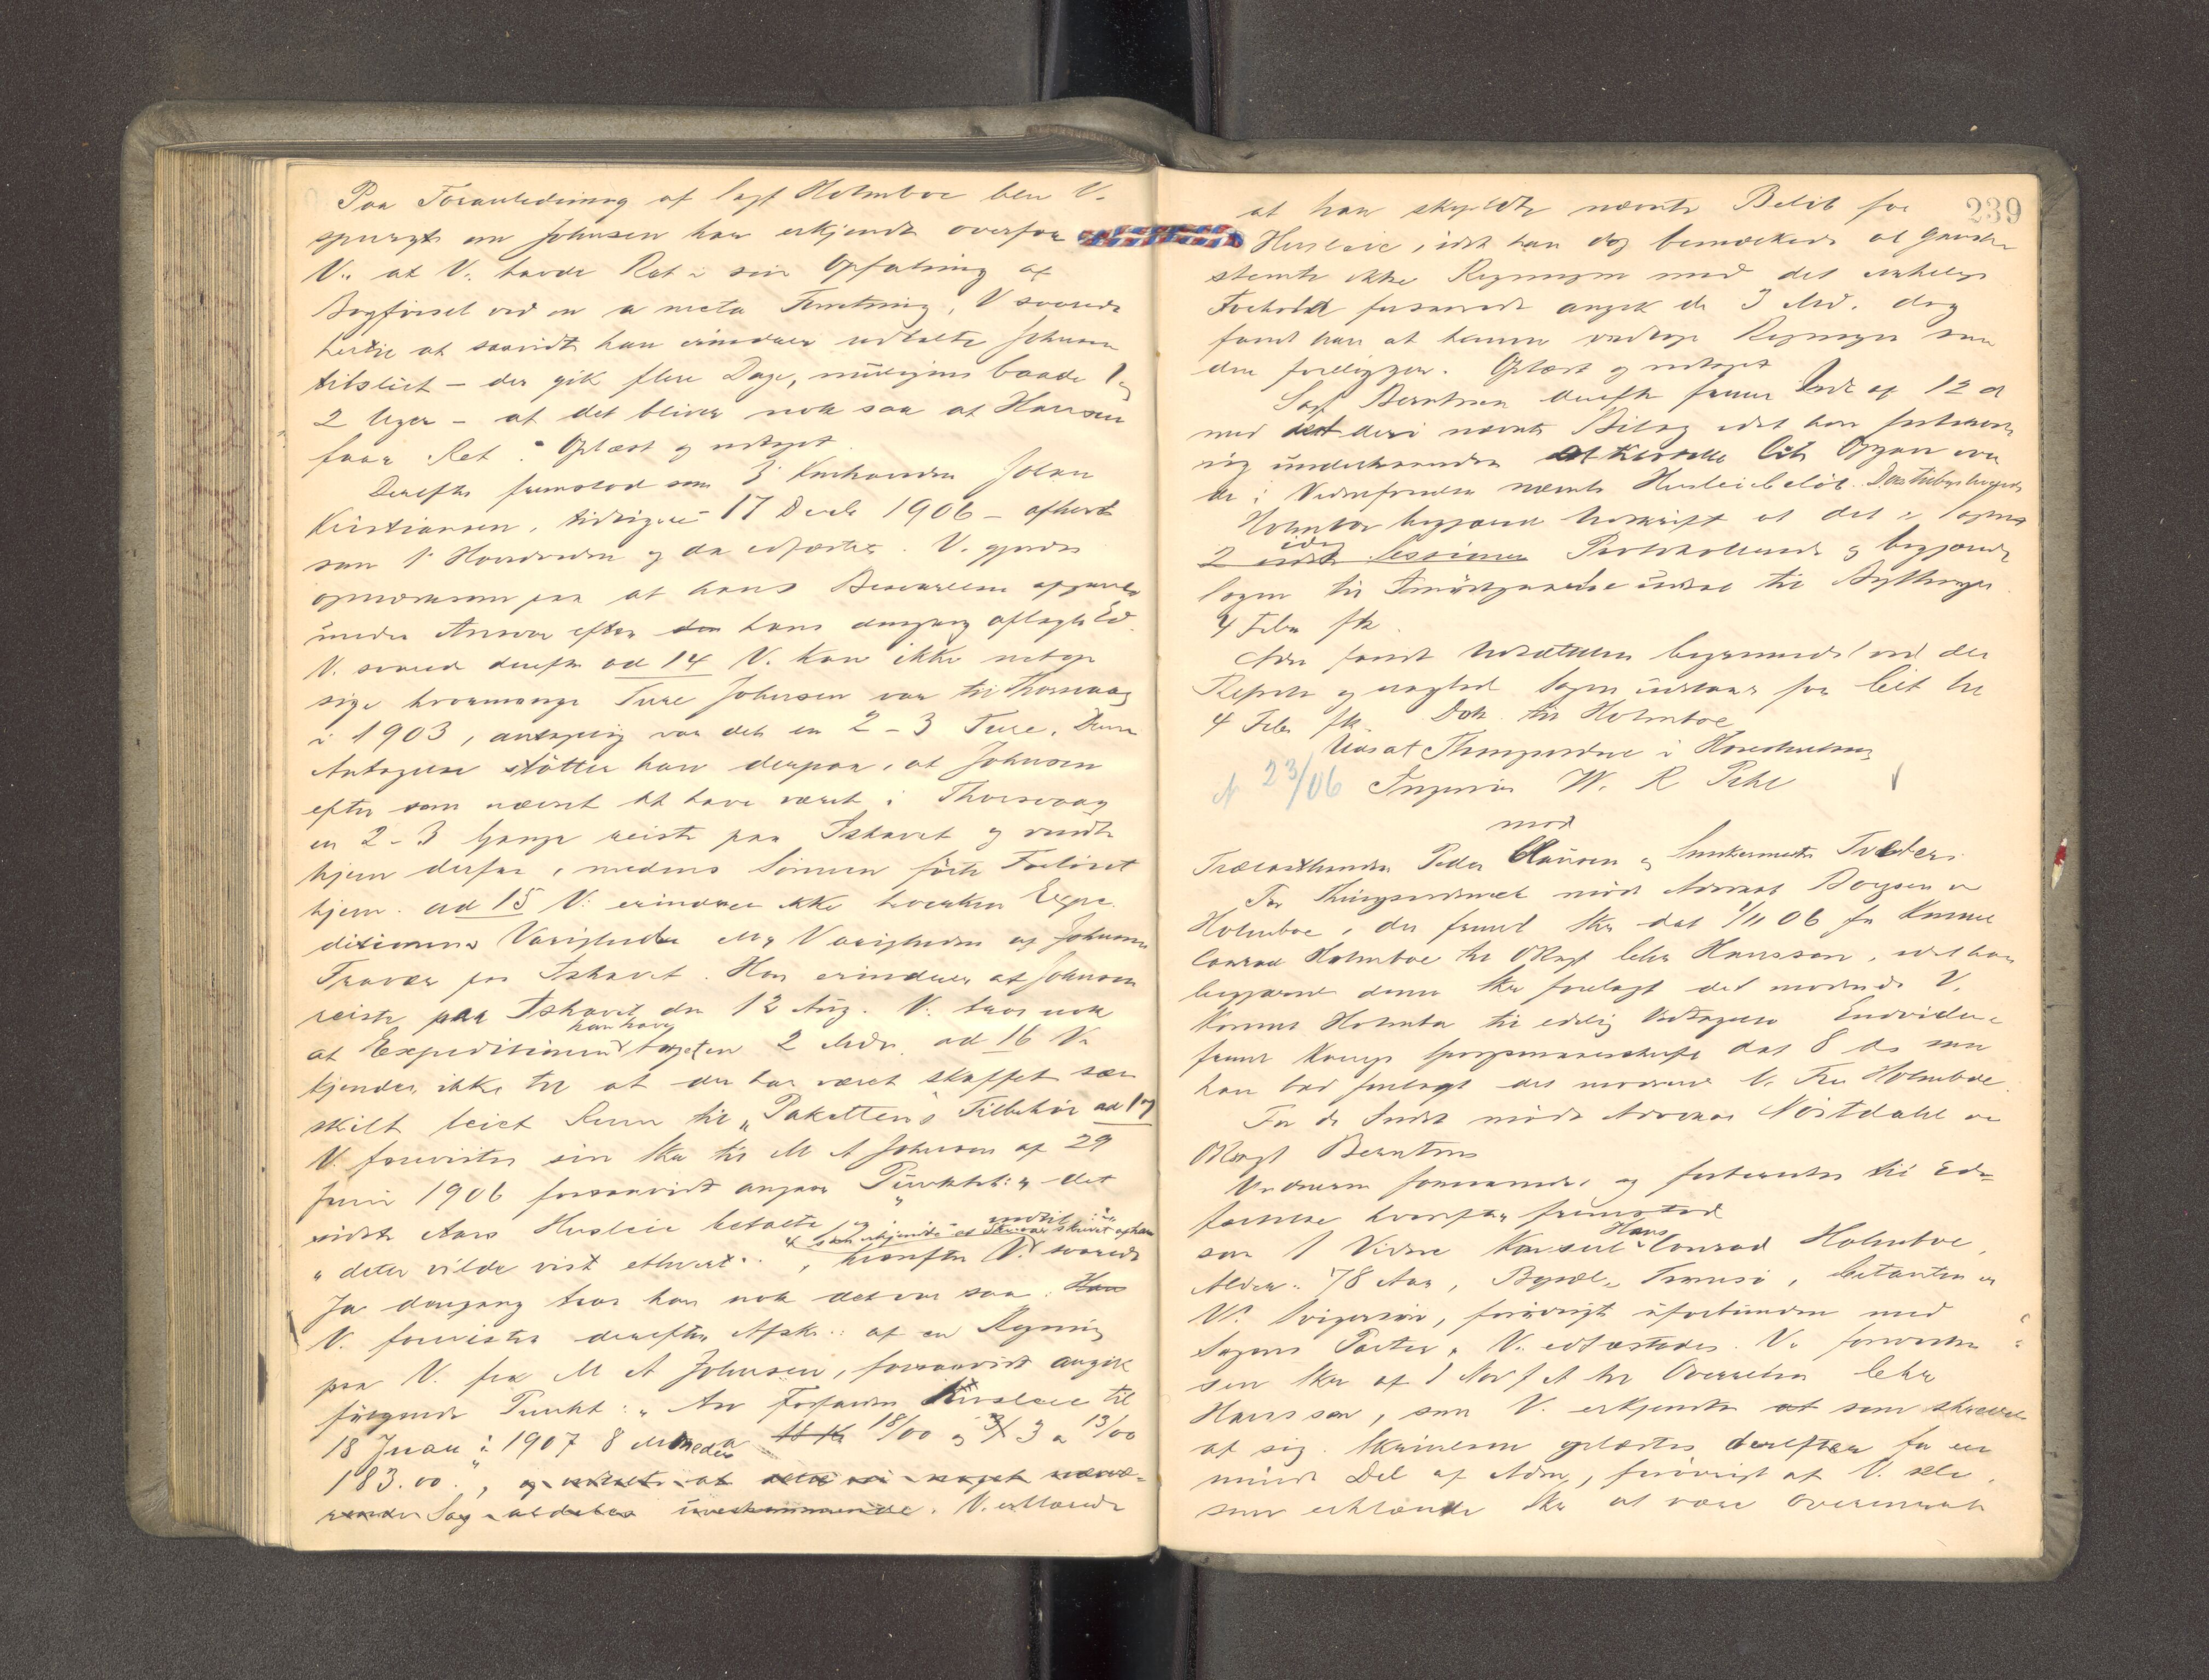 Paa Foranledning af Sagf Holmboe blev V.
spurgt om Johnsen har erkjendt overfor
V. at V. havde Ret i sin Opfatning af
Bogførsel ved en a meta Forretning, V svarede
hertil at saavidt han erindrer udtalte Johnsen
tilslut – der gik flere Dage, muligens baade 1 og
2 Uger – at det bliver nok saa at Hansen
faar Ret. Oplæst og vedtaget
Derefter fremstod som 3 Johan
Kristiansen, tidligere 17 Decbr 1906 – afhørt
som 1 og da edfæstet. V. gjordes
opmærksom paa at hans Besvarelse afgaves
under Ansvar efter den hans dengang aflagte Ed.
V. svarede derefter ad 14 V. kan ikke netop
sige hvormange Ture Johnsen var til Thorsvaag
i 1903, antagelig var det en 2-3 Ture. Denne
Antagelse støtter han derpaa, at Johnsen
efter som nævnt at have været i Thorsvaag
en 2-3 Gange reiste paa Ishavet og vendte
hjem derfra, medens Sønnen førte Fartøiet
hjem. ad 15 V. erindrer ikke hverken Expe-
ditionens Varighed eller Varigheden af Johnsens
Fravær paa Ishavet. Han erindrer at Johnsen
reiste paa Ishavet den 12 Aug. V. tror nok
at Expeditionen kan have taget en 2 Mdr. ad 16 V.
kjender ikke til at der har været skaffet sær
skilt leiet Rum til „Pakettens" Tilbehør ad 17
V. forevistes sin Skr til M A Johnsen af 29
Juni 1906 forsaavidt angaar Punktet: „det
sidste Aars Husleie betalte
som erkjendtes at være skrevet af ham
„dette vilde vist ethvert.. , hvorefter V. svarede
Ja dengang tror han nok det var saa. Han
V. forevistes derefter Afskr. af en Regning
paa V. fra M A Johnsen, forsaavidt angik
følgende Punkt: „An Husleie til
18 Juau i 1907 8 Maaneder a 18/00 og 3 a 13/00
183.00.", og
Sag uvedkommende. V. erklærede
239
at han skyldte nævnte Beløb for
Husleie, idet han dog bemærkede at ganske
stemte ikke Regningen med det virkelige
Forhold forsaavidt angik de 3 Md. dog
fandt han at kunne vedtage Regningen som
den foreligger. Oplæst og vedtaget
Sagf Berntsen derefter fremlagde af 12 d
med det deri nævnte Bilag idet han
sig
de i nævnte Husleiebeløb.
Holmboe begjærede Udskrift af det i Sagen
2 sidste Sessioner Protokollerede og begjærede
Sagen til udsat til
4 Febr fk.
Adm fandt Udsættelsen begrundet ved den
og Sagen udstaar for til
4 Febr fk. Dok. til Holmboe
Udsat Thingsvidne i Hovedsagen
N 23/06 Ingeniør W. R Pihl
mod
Trælasthandler Peder Clausen og
For Thingsvidnet mødte Advokat Boysen ved
Holmboe, der fremlagde Skr dat 1/11 06 fra Konsul
Conrad Holmboe til ORsagf Hansson, idet han
begjærede denne Skr forelagt det mødende V.
Konsul Holmboe til edelig Vedtagelse Endvidere
fremlagde dat 8 ds som
han bad forelagt det mødende V. Fru Holmboe.
For de Indst mødte Advokat Nørtdahl ved
ORsagf Berntsen
Vidnerne formanedes og forberedtes til Ed-
fæstelse hvorefter fremstod
som 1 Vidne Konsul Hans Conrad Holmboe,
Alder: 78 Aar, Bopæl: Tromsø, Citanten er
V. Svigersøn, forøvrigt uforbunden med
Sagens Parter. V. edfæstedes. V. forevistes
sin Skr af 1 Nov f A til Overretssa
Hansson, som V. erkjendte at som skrevet
af sig. Skrivelsen oplæstes derefter for en
mindre Del af Adm, forøvrigt af V. selv,
som erklærede Skr at være overensste